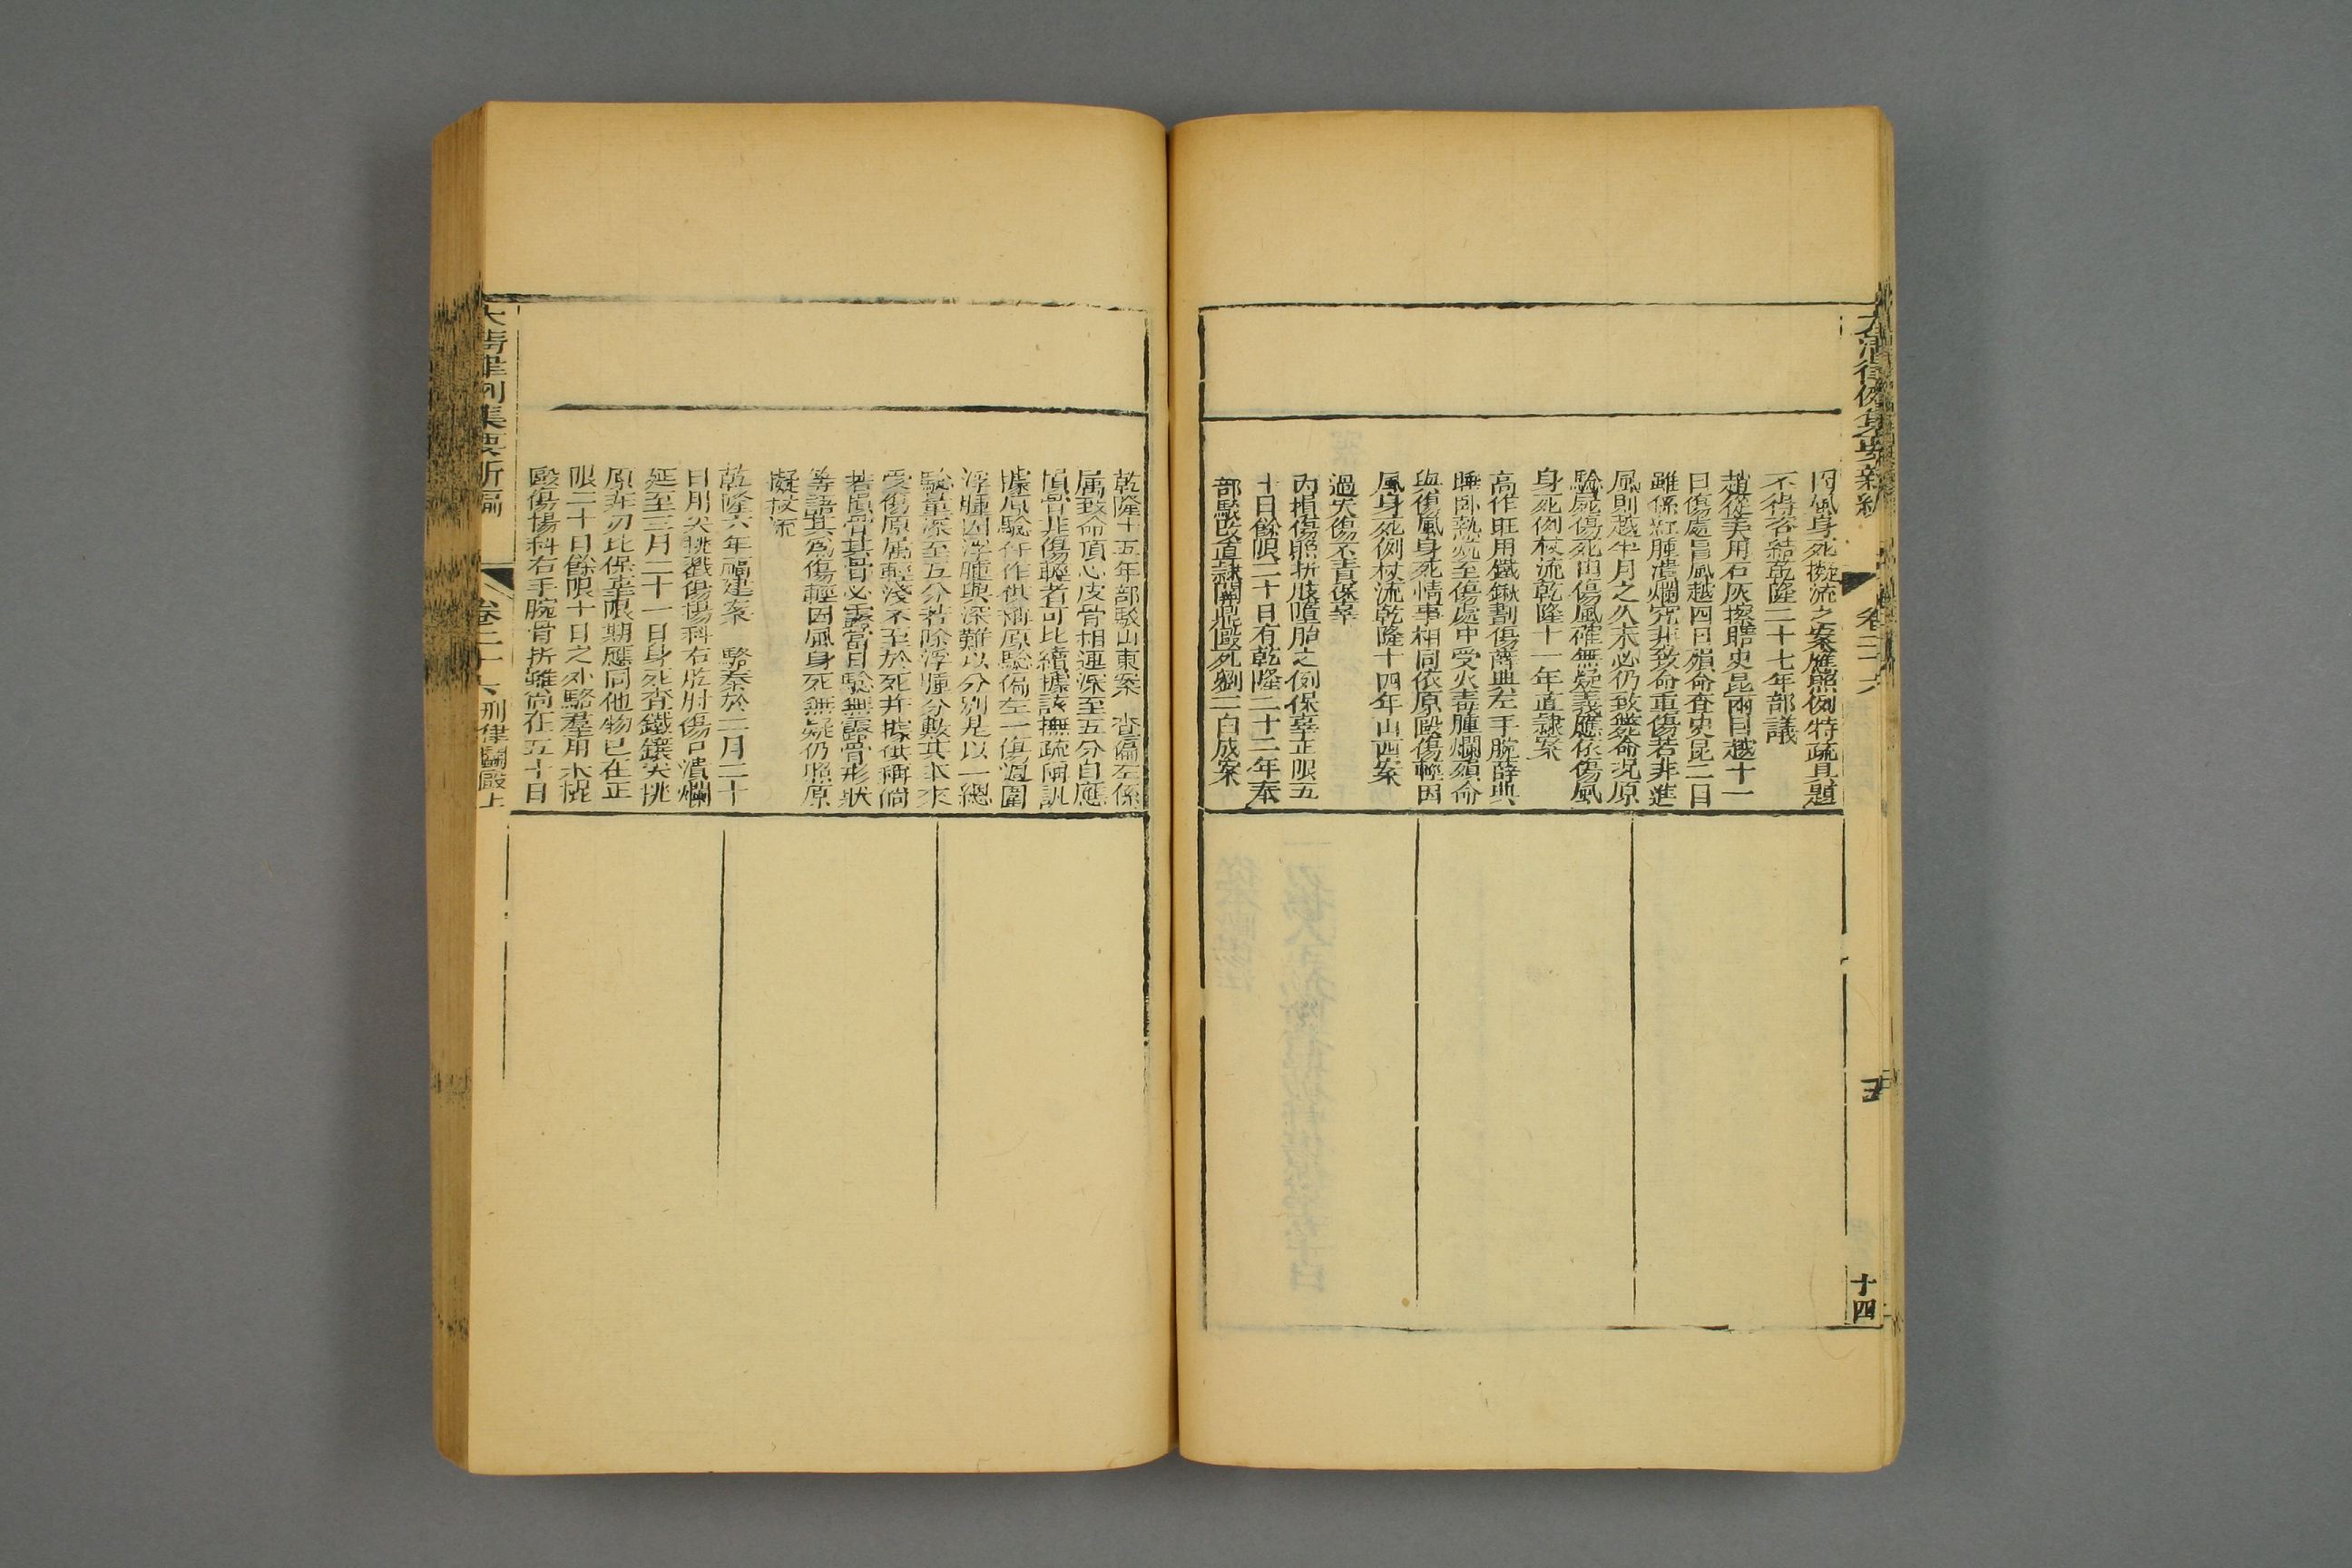 大清律例集要新編
卷二十六
十四
因風身死擬流之案應照例特疏具題
不得咨結乾隆二十七年部議
趙從美用石灰擦瞎史昆兩目越十一
日傷處冒風越四日殞命查史昆二目
雖係紅腫潰爛究非致命重傷若非進
風則越半月之久未必仍致斃命況原
驗屍傷死由傷風確無疑義應依傷風
身死例杖流乾隆十一年直隸案
高作旺用鐵鍬劃傷薛典左手腕薛典
睡卧熱炕至傷處中受火毒腫爛殞命
與傷風身死情事相同依原毆傷輕因
風身死例杖流乾隆十四年山西案
過失傷不責保辜
內損傷照折肢墮胎之例保辜正限五
十日餘限二十日有乾隆二十二年奉
部駁改直隸關鼎毆死劉二白成案
乾隆十五年部駁山東案 查偏左係
属致命頂心皮骨相連深至五分自應
損骨非傷輕者可比續據該撫疏稱訊
據原驗仵作供稱原驗偏左一傷週圍
浮腫因浮腫與深難以分別是以一總
驗量深至五分若除浮腫分數其本來
受傷原属輕淺不至於死并據供稱倘
若損骨其骨必露當日驗無露骨形狀
等語其為傷輕因風身死無疑仍照原
擬杖流
乾隆六年福建案 駱泰於二月二十
日用尖挑戳傷楊科右肐肘傷口潰爛
延至三月二十一日身死查鐵鑲尖挑
原非刃比保辜限期應同他物已在正
限二十日餘限十日之外駱羣用木棍
毆傷楊科右手腕骨折雖尚在五十日
大清律例集要新編
卷二十六
刑律鬪毆上